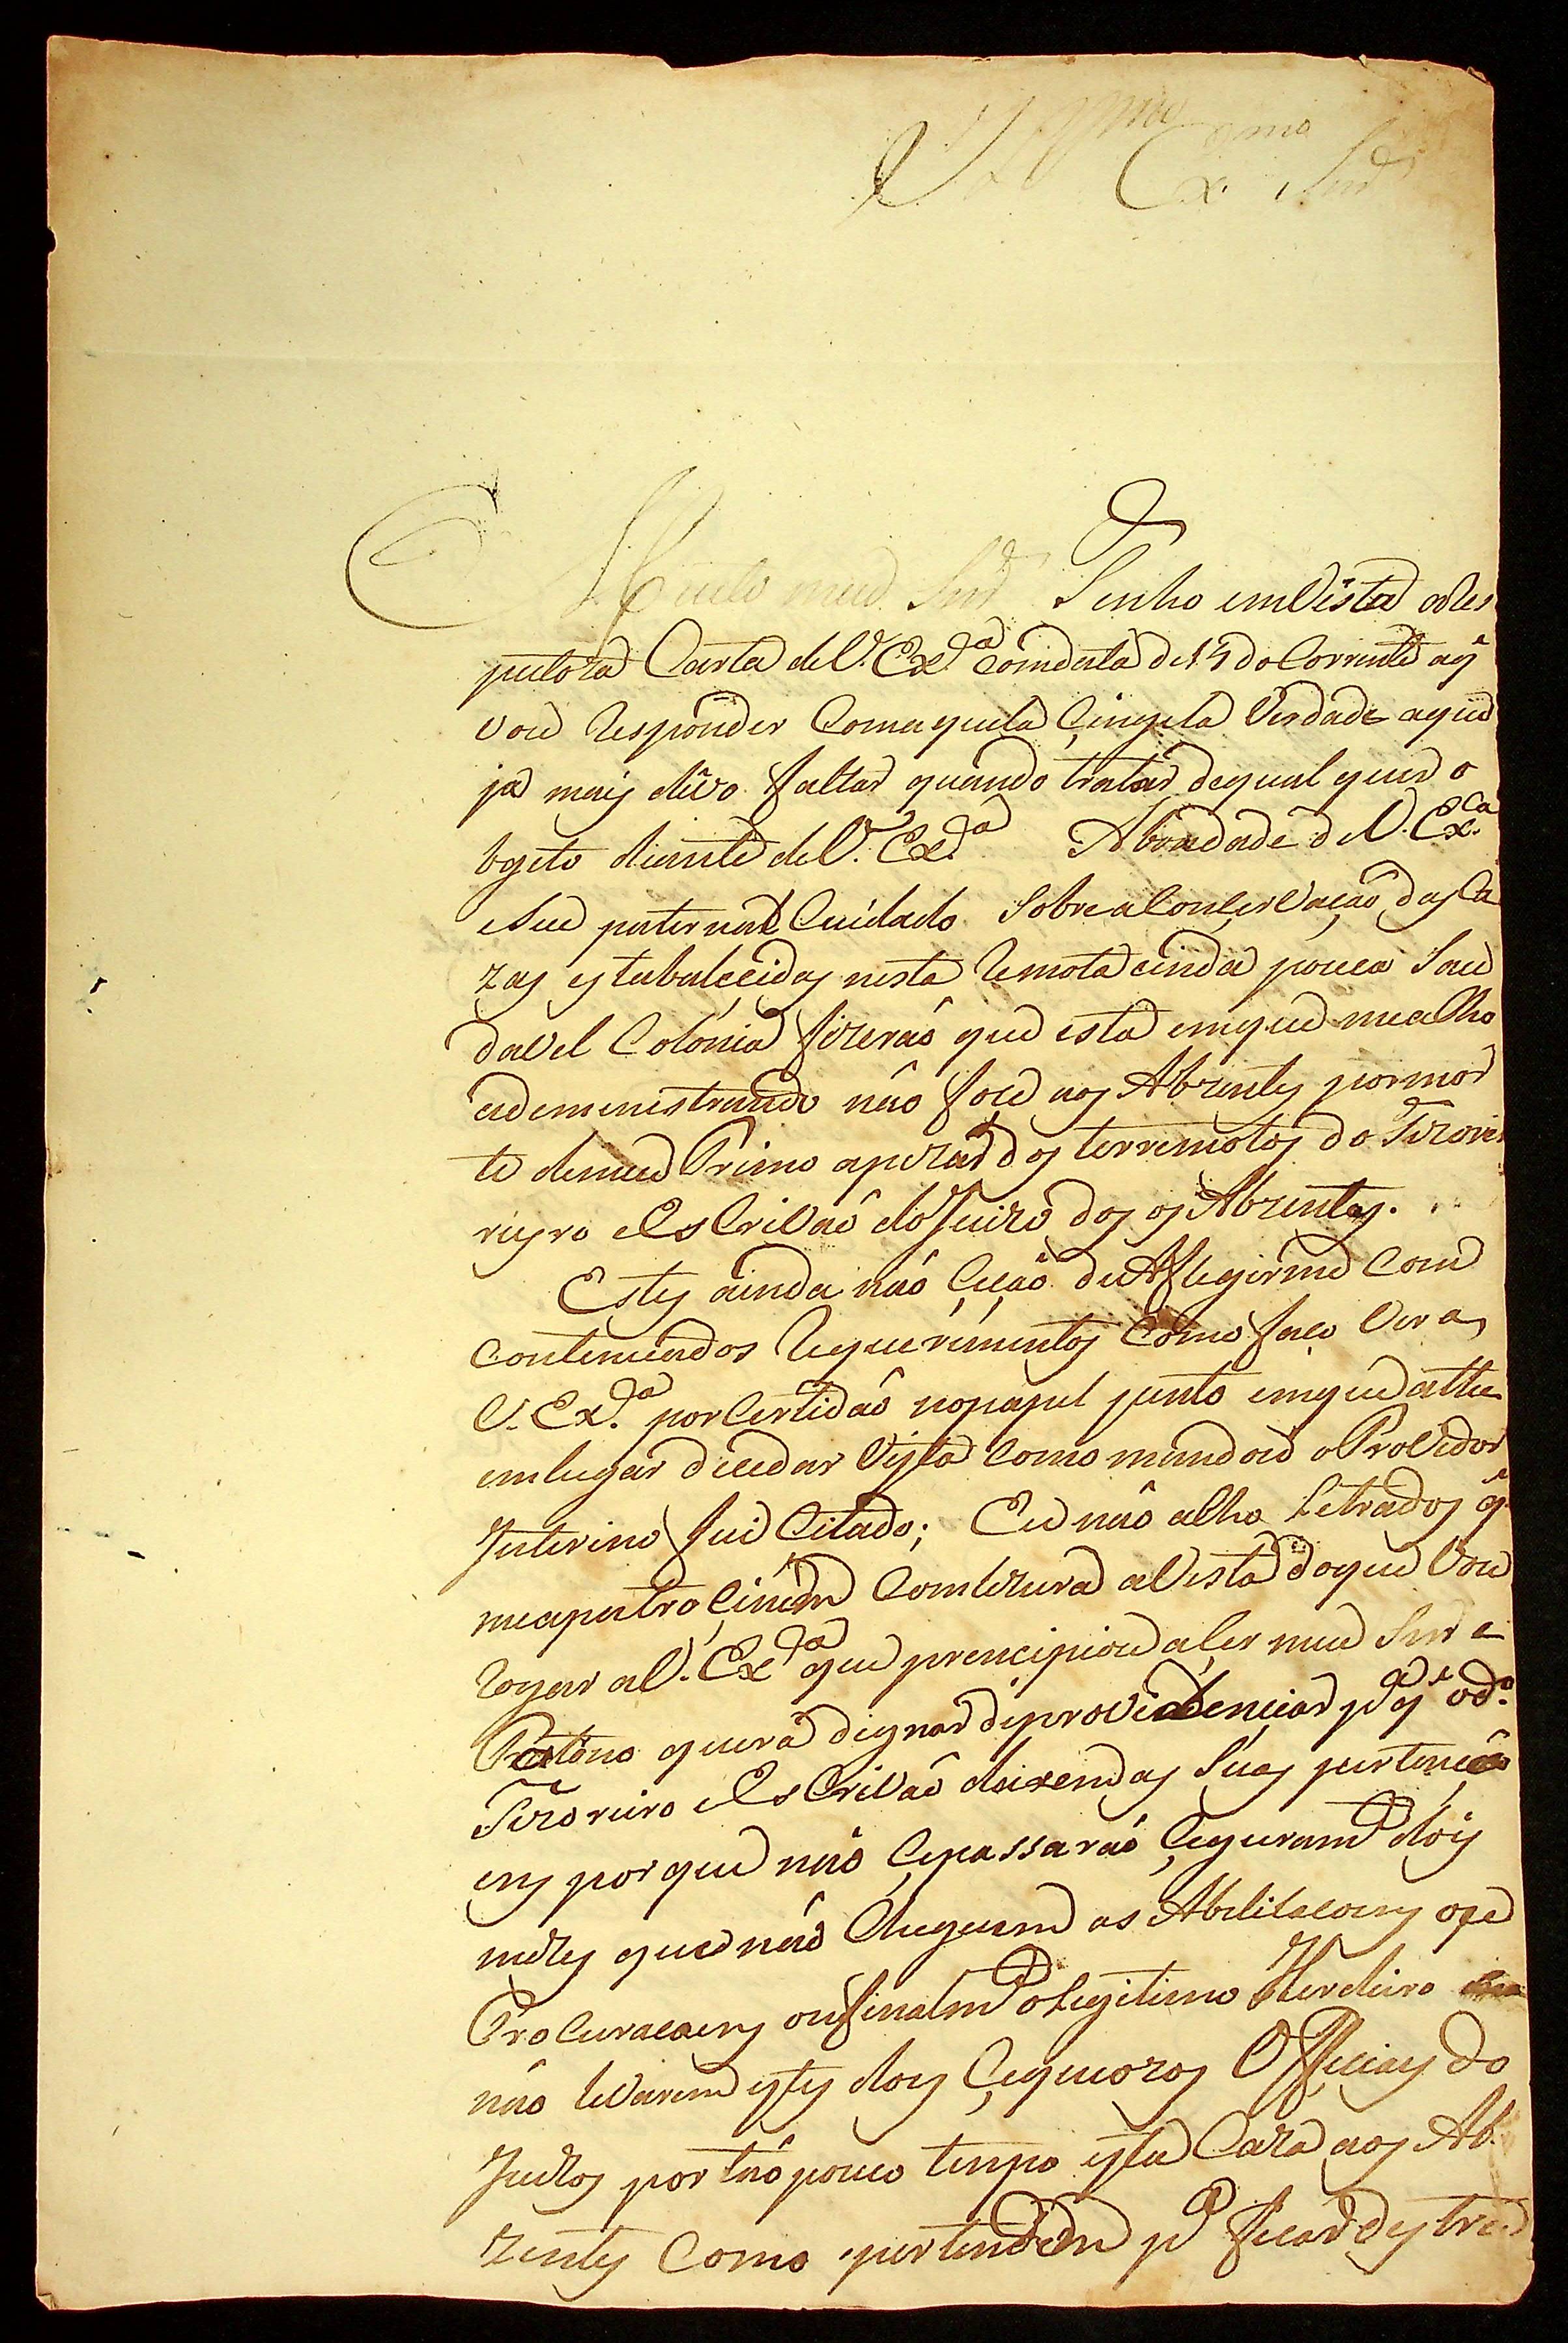 Illmo Exmo Snr
Muito meu Snr Tenho emVista ares
peitoza Carta deV. Exa. comdata de 15 do Corrente aq̃
vou Responder Comaquela Çingela Verdade aque
ja mais dévo faltar quando tratar dequal quer o
bgeto diante deV. Exa. Abondade deV. Exca.
eSeu paternal Cuidado SobreaConçervaçaõ dasCa
zas establecidas nesta Remota einda pouca Sau
davel Colonia fizeraõ que esta emque meaCho
adeministrando naõ fou aos Abzentes pormor
te demeu Primo apezar dos terremotos do Tizorei
reyro eEsCrivaõ doJuizo dos os Abzentes.
Estes ainda naõ Çeçaõ deAflegirme Com
Contenuados Requerimentos Como faço Ver a
V. Exa. porCertidaõ nopapel junto emque athe
emlugar deedar Vista Como mandou oProVedor
Interino fui Citado; Eu naõ aCho Letrados q̃
mepatroçinem Comtezura aVista doque Vou
Rogar aV. Exa que prencipiou aÇer meu Snr e
Patrono queira dignar deprovidenciar pa q̃ odo.
Tizoreiro eEsCrivaõ deixem as Suas pertençõ
ens porque naõ Çepassaraõ Çeguramte dois
mezes que naõ Cheguem as Abelitacoens ope
Procuracoens oufinalmte oLegitimo Herdeiro
naõ levarem estes dois Çequiozos Officiaes do
Juizos por taõ pouco tempo esta Caza aos Ab
zentes Como pertendem pa ficar destru